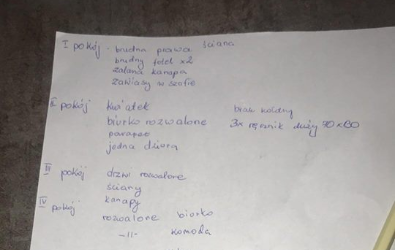 I pokój - brudna prawa ściana
brudny fotel x2
zalana kanapa
zawiasy w szafie
II pokój kwiatek brak kołdry
biurko rozwalone 3x ręcznik duży 70x60
jedna dziura
III pokój drzwi rozwalone
ściany
IV pokój kanapy
rozwalone biurko
-||- komoda